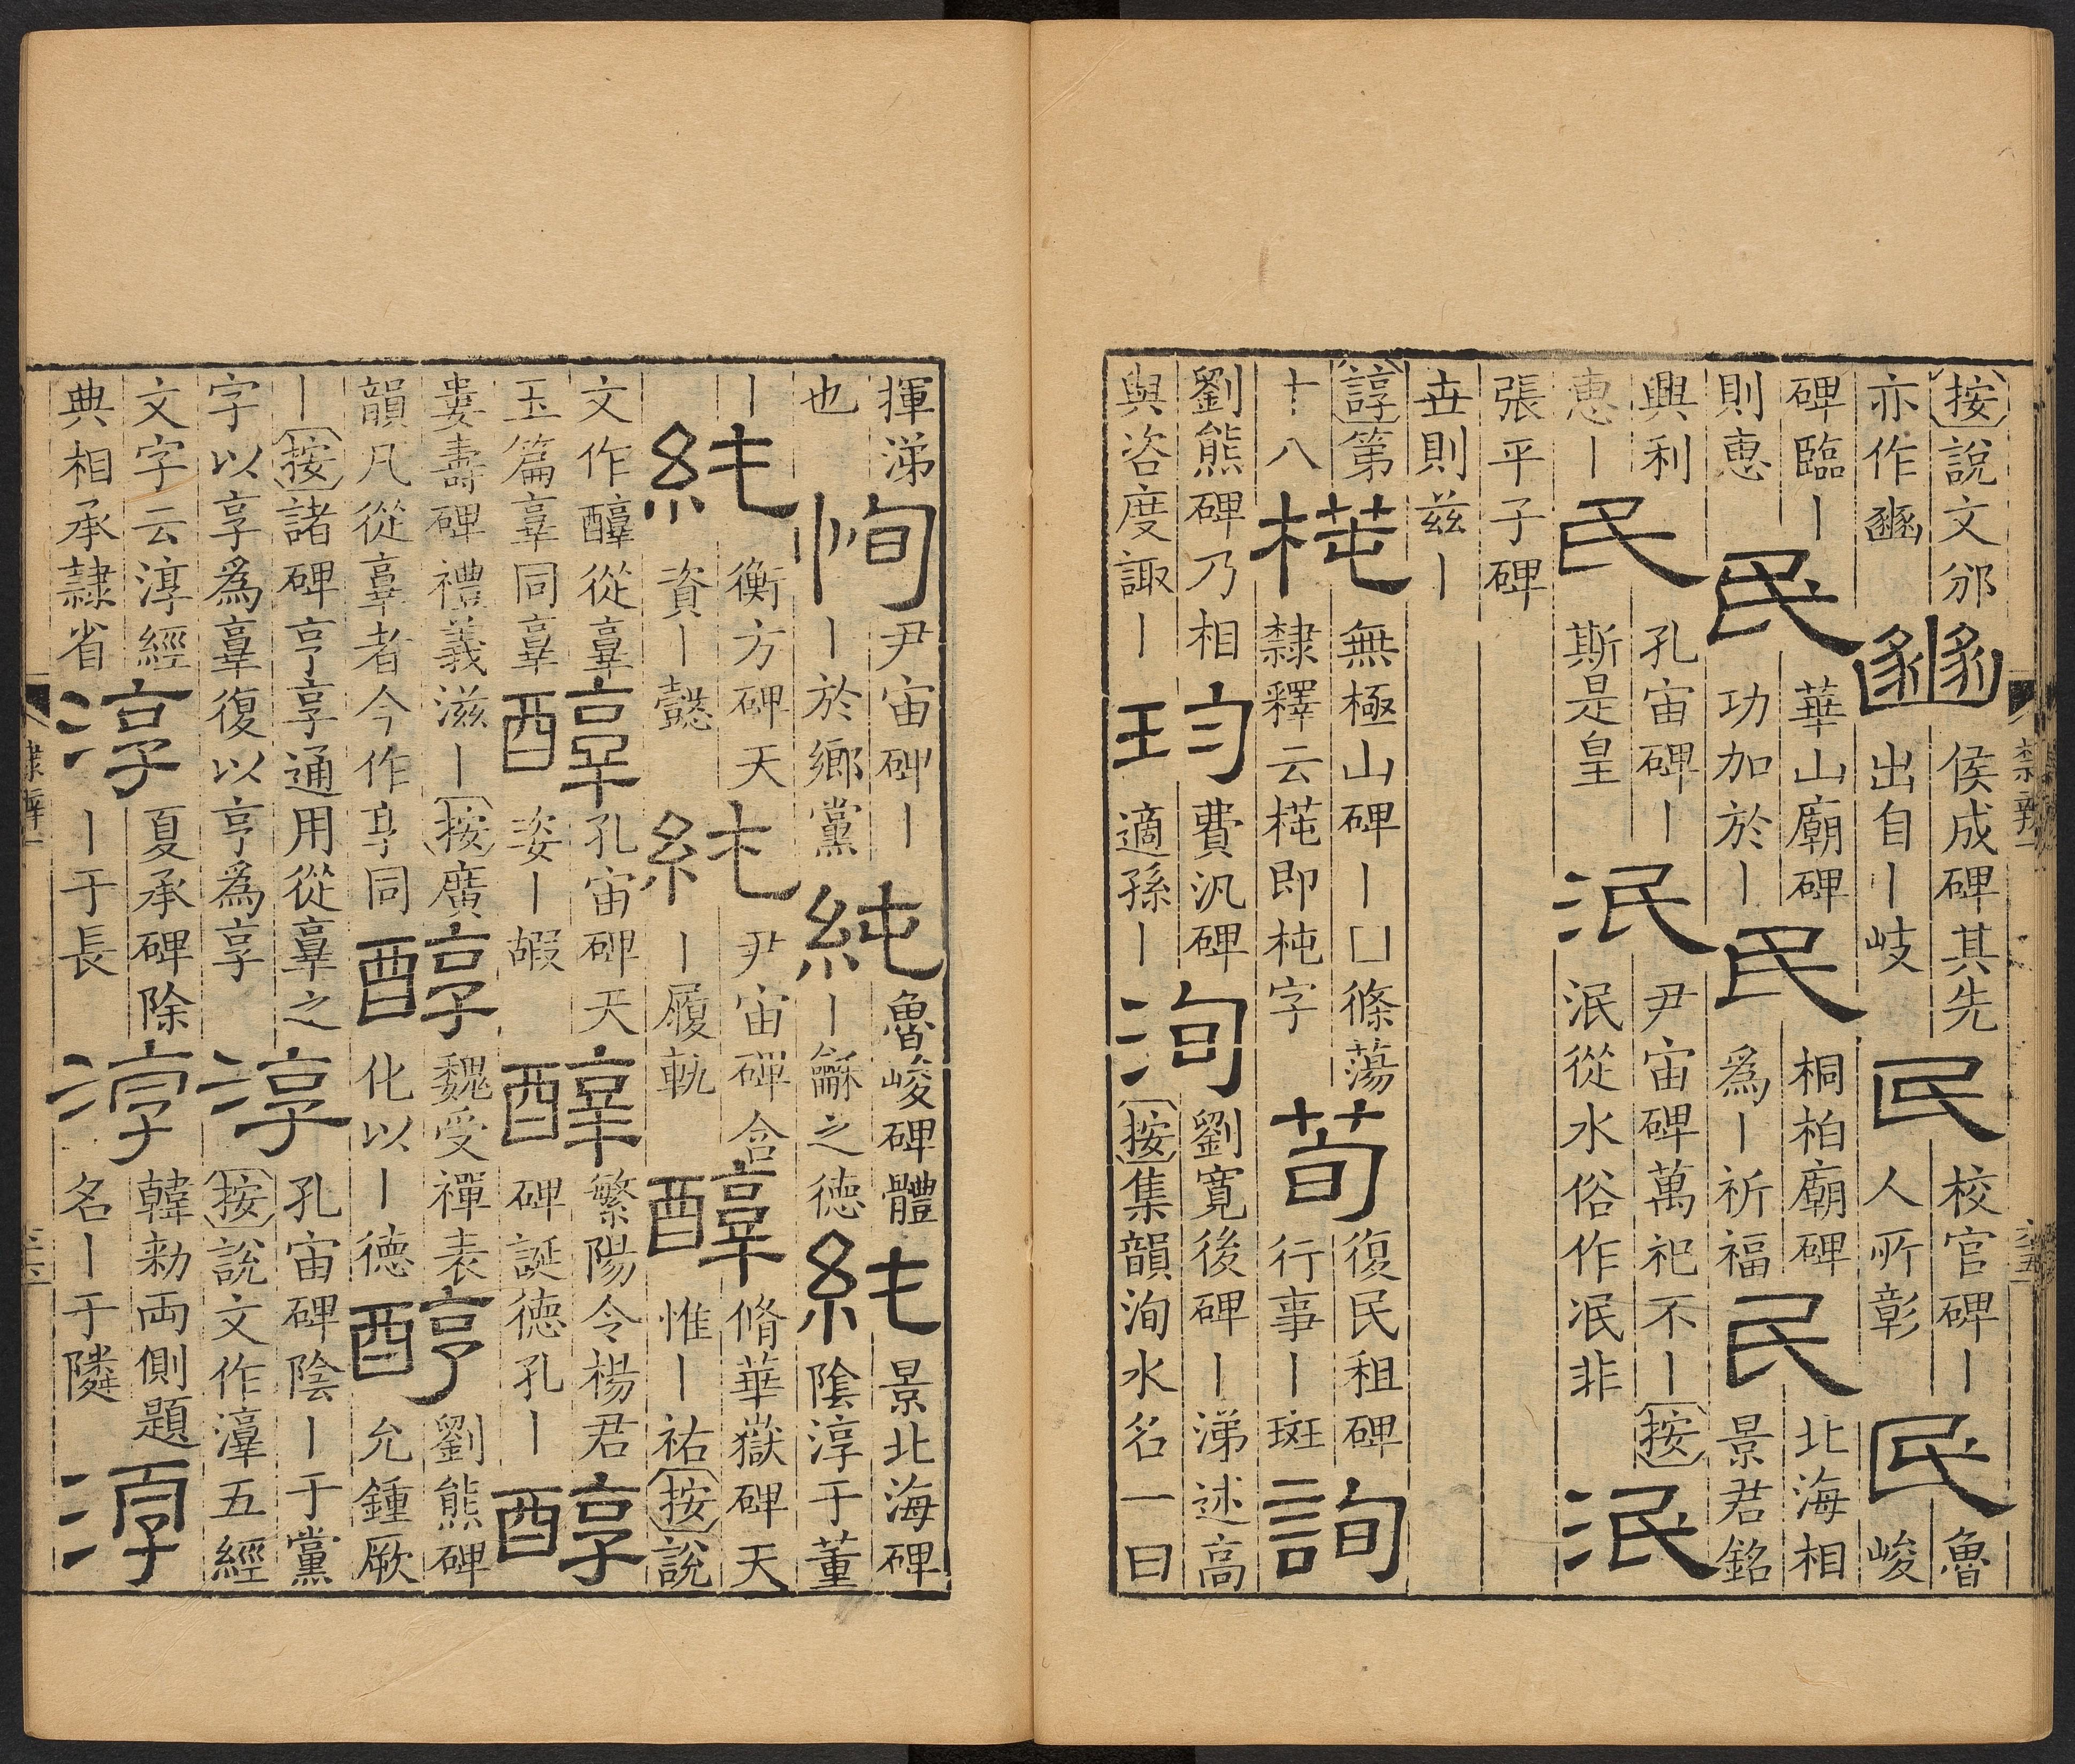 按說文邠亦作豳豳侯成碑其先出自丨岐民校官碑丨人所彰民魯峻
碑臨丨則恵民華山廟碑功加於丨民桐柏廟碑爲丨祈福民北海相景君銘
興利恵丨民孔宙碑丨斯是皇泯尹宙碑萬祀不丨按泯從水俗作泯非泯
張平子碑丗則兹丨
諄第十八杶無極山碑丨凵條蕩隸釋云㮂即杶字荀復民租碑行事丨斑詢
劉熊碑乃相與咨度諏丨玽費汎碑適孫丨洵劉寛後碑丨涕述高按集韻洵水名一曰
揮涕也恂尹宙碑丨丨於鄉黨純魯峻碑體丨龢之德純景北海碑陰淳于董
丨純衡方碑天資丨懿純尹宙碑含丨履軌醇脩華嶽碑天惟丨祐按說
文作醇從𦎫玉篇𦎫同𦎫醇孔宙碑天姿丨嘏醇繁陽令楊君碑誕德孔丨醇
婁壽碑禮義滋丨按廣韻凡從𦎫者今作享同醇魏受禪表化以丨德醇劉熊碑允鍾厥
丨按諸碑亨享通用從𦎫之字以享爲𦎫復以亨爲享淳孔宙碑陰丨于黨按說文作淳五經
文字云淳經典相承隸省淳夏承碑除丨于長淳韓勑兩側題名丨于隣淳